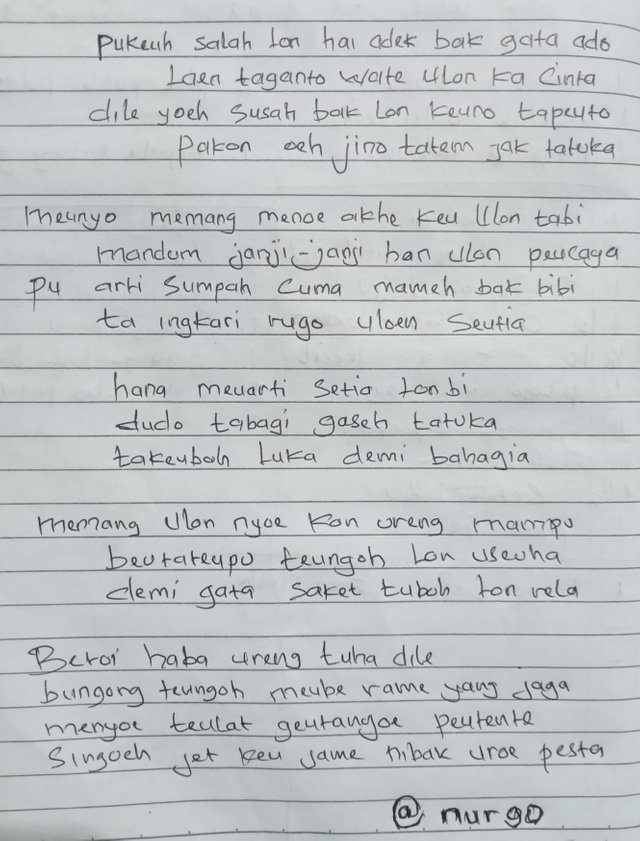 Pukeuh salah lon hai adek bak gata ado
Laen taganto waite ulon ka Cinta
dile yoeh susah bak lon keuno tapeuto
Pakon oeh jino tatem jak tatuka
Meunyo memang menoe akhe keu Ulon tabi
mandum janji-janji ban ulon peucaya
Pu arti Sumpah Cuma mameh bak bibi
ta ingkari rugo uloen Seutia
hana meuarti setia lon bi
dudo tabagi gaseh tatuka
takeuboh Luka demi bahagia
memang Ulon nyoe kon ureng mampu
beutateupu teungoh Lon useuha
demi gata saket tuboh lon rela
Betoi haba ureng tuha dile
bungong teungoh meube rame yang jaga
menyoe teulat geutangoe peutente
Singoeh jet keu jame hibak uroe pesta
@ nurgo